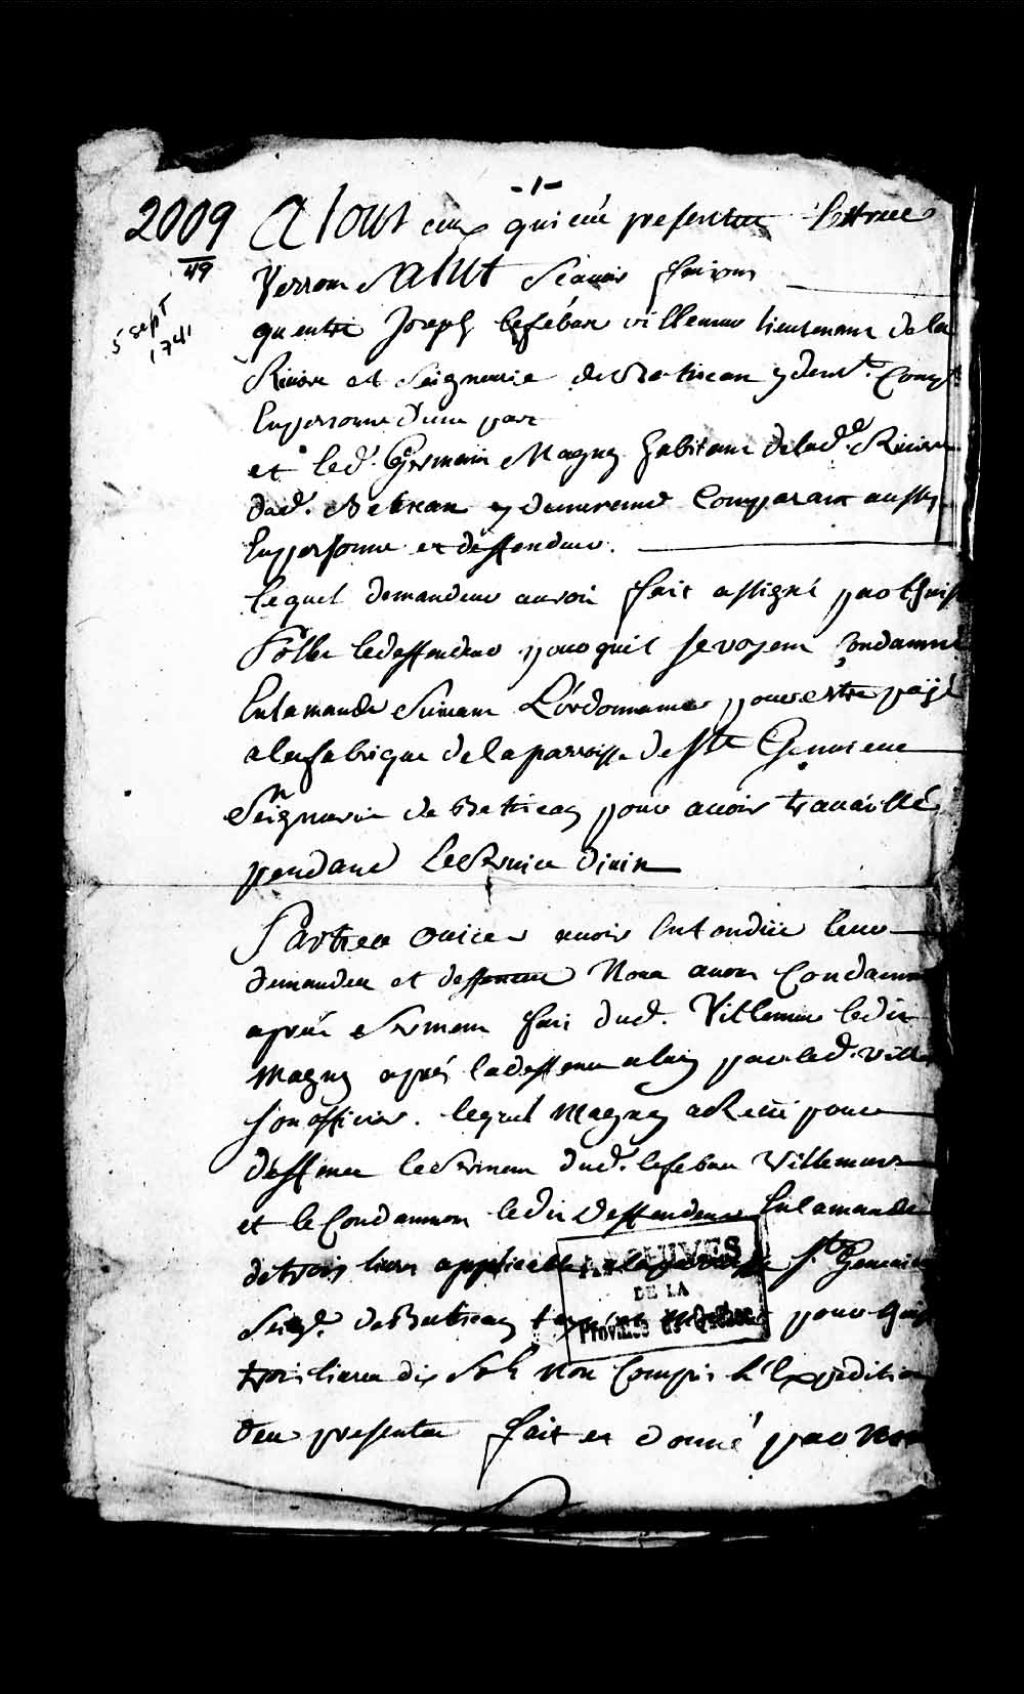 -1-
2009
49
5 sept
1741
A tous ceux qui ces presentes Lettres
Verront Salut Scavoir faisons
quentre Joseph lefébure villemur lieutenant de la
Riviere et Seigneurie de Batiscan y demt. Compt
En personne d'une part
et led. Germain Magny habitant de lad.e Riviere
dud. Betiscan y demeurend Comparant aussy
En personne et deffendeur.
lequel demandeur auroit fait assigné par
ledeffendeur pour quil se voyent Condamné
En lamande Suivant L'ordonnance pour estre payé
a la fabrique de la parroisse de Ste Genevieve
Seigneurie de Batiscan pour avoir travaillé
pendand Le Service divin
Parties ouies avoir Entendüe leur
demandes et deffences Nous avons Condamné
aprés Serment fait dud. Villemur ledit
Magny aprés la deffence a luy par led. vill
son officier. lequel Magny a pour
deffence le Serment dud. lefebure Villemure
et le Condamnon ledit Deffendeur En lamande
de trois livres applicable a la parroisse Ste Genevieve
Seig.rie de Batiscan pour
trois livres dix Sols non Compris L'Expedition
des presentes fait et donné par Nous
ARCHIVES
DE LA
Province de Québec